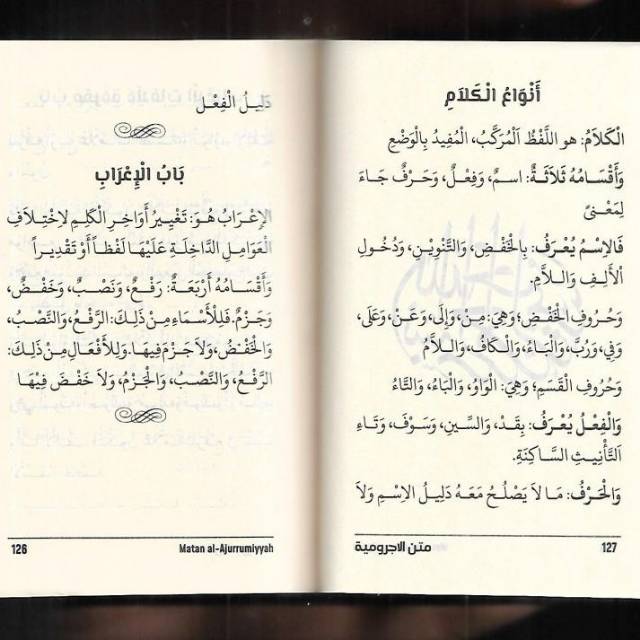 أَنْوَاعُ الْكَلَامِ
الْكَلَامُ: هو اللَّفْظُ الْمُرَكَّبُ، الْمُفِيدُ بِالْوَضْعِ
وَأَقْسَامُهُ ثَلَاثَةٌ: اسمٌ، وَفِعْلٌ، وَحَرْفٌ جَاءَ
لِمَعْنىً
فَالِاسْمُ يُعْرَفُ: بِالْخَفْضِ، وَالتَّنْوِينِ، وَدُخُولِ
الْأَلِفِ وَاللَّامِ.
وَحُرُوفِ الْخَفْضِ، وَهِيَ: مِنْ، وَإِلَى، وَعَنْ، وَعَلَى،
وَفِي، وَرُبَّ، وَالْبَاءُ، وَالْكَافُ، وَاللَّامُ
وَحُرُوفِ الْقَسَمِ؛ وَهِيَ: الْوَاوُ، وَالْبَاءُ، وَالتَّاءُ
وَالْفِعْلُ يُعْرَفُ: بِقَدْ، وَالسِّينِ، وَسَوْفَ، وَتَاءِ
التَّأْنِيثِ السَّاكِنَةِ.
وَالْحَرْفُ: مَا لَا يَصْلُحُ مَعَهُ دَلِيلُ الِاسْمِ وَلَا
متن الاجرومية 127
دَلِيلُ الْفِعْلِ
بَابُ الْإِعْرَابِ
الإِعْرَابُ هُوَ: تَغْيِيرُ أَوَاخِرِ الْكَلِمِ لِاخْتِلَافِ
الْعَوَامِلِ الدَّاخِلَةِ عَلَيْهَا لَفْظاً أَوْ تَقْدِيراً
وَأَقْسَامُهُ أَرْبَعَةٌ: رَفْعٌ، وَنَصْبٌ، وَخَفْضٌ،
وَجَزْمٌ. فَلِلْأَسْمَاءِ مِنْ ذَلِكَ: الرَّفْعُ، وَالنَّصْبُ،
وَالْخَفْضُ، وَلَا جَزْمَ فِيهَا. وَلِلْأَفْعَالِ مِنْ ذَلِكَ:
الرَّفْعُ، وَالنَّصْبُ، وَالْجَزْمُ، وَلَا خَفْضَ فِيْهَا
126 Matan al-Ajurrumiyyah